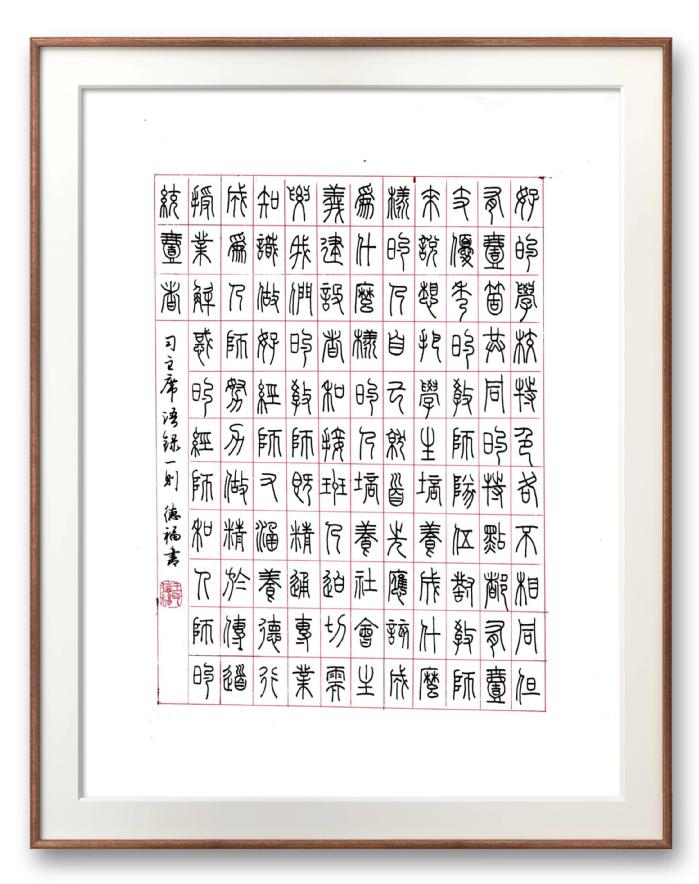 好的學校特色各不相同但
有壹箇共同的特點都有壹
支優秀的教師隊伍對教師
來說想把學生培養成什麼
樣的人自己就首先應該成
爲什麼樣的人培養社會主
義建設者和接班人迫切需
要我們的教師既精通專業
知識做好經師又涵養德行
成爲人師努力做精於傳道
授業解惑的經師和人師的
統壹者
习主席语録一则 德福書